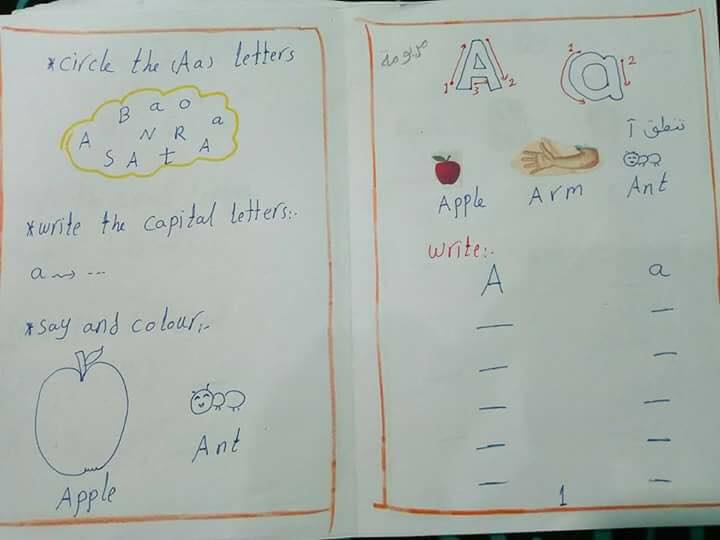 *circle the (Aa) letters
B a o
A N R a
S A t A
*write the capital letters:-
a → ...
*say and colour:-
Apple
Ant
A a
1 3 2
1 2
تنطق آ
Apple Arm Ant
write:-
A a
1